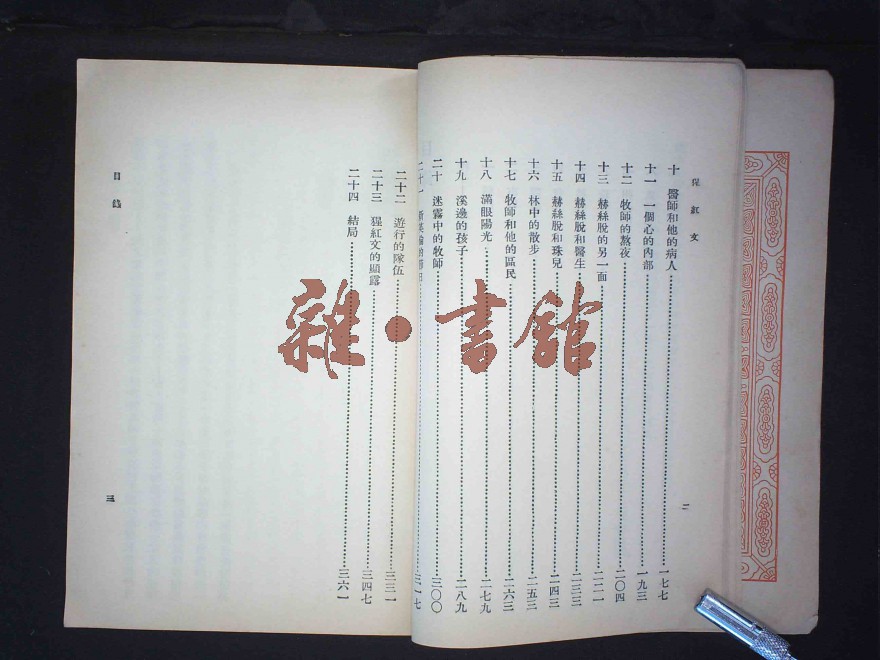 猩紅文
二
十　醫師和他的病人⋯⋯一七七
十一　一個心的內部⋯⋯一九三
十二　牧師的熬夜⋯⋯二〇四
十三　赫絲脫的另一面⋯⋯二二一
十四　赫絲脫和醫生⋯⋯二三三
十五　赫絲脫和珠兒⋯⋯二四三
十六　林中的散步⋯⋯二五三
十七　牧師和他的區民⋯⋯二六三
十八　滿眼陽光⋯⋯二七九
十九　溪邊的孩子⋯⋯二八九
二十　迷霧中的牧師⋯⋯三〇〇
二十一　新英倫的⋯⋯三一七
二十二　遊行的隊伍⋯⋯三三一
二十三　猩紅文的顯露⋯⋯三四七
二十四　結局⋯⋯三六一
目錄
三
雜·書館